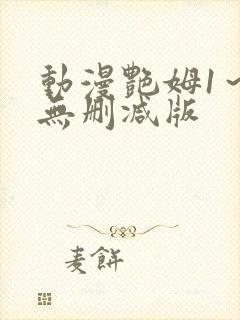 動漫艷姆1～
無刪减版
麦餅